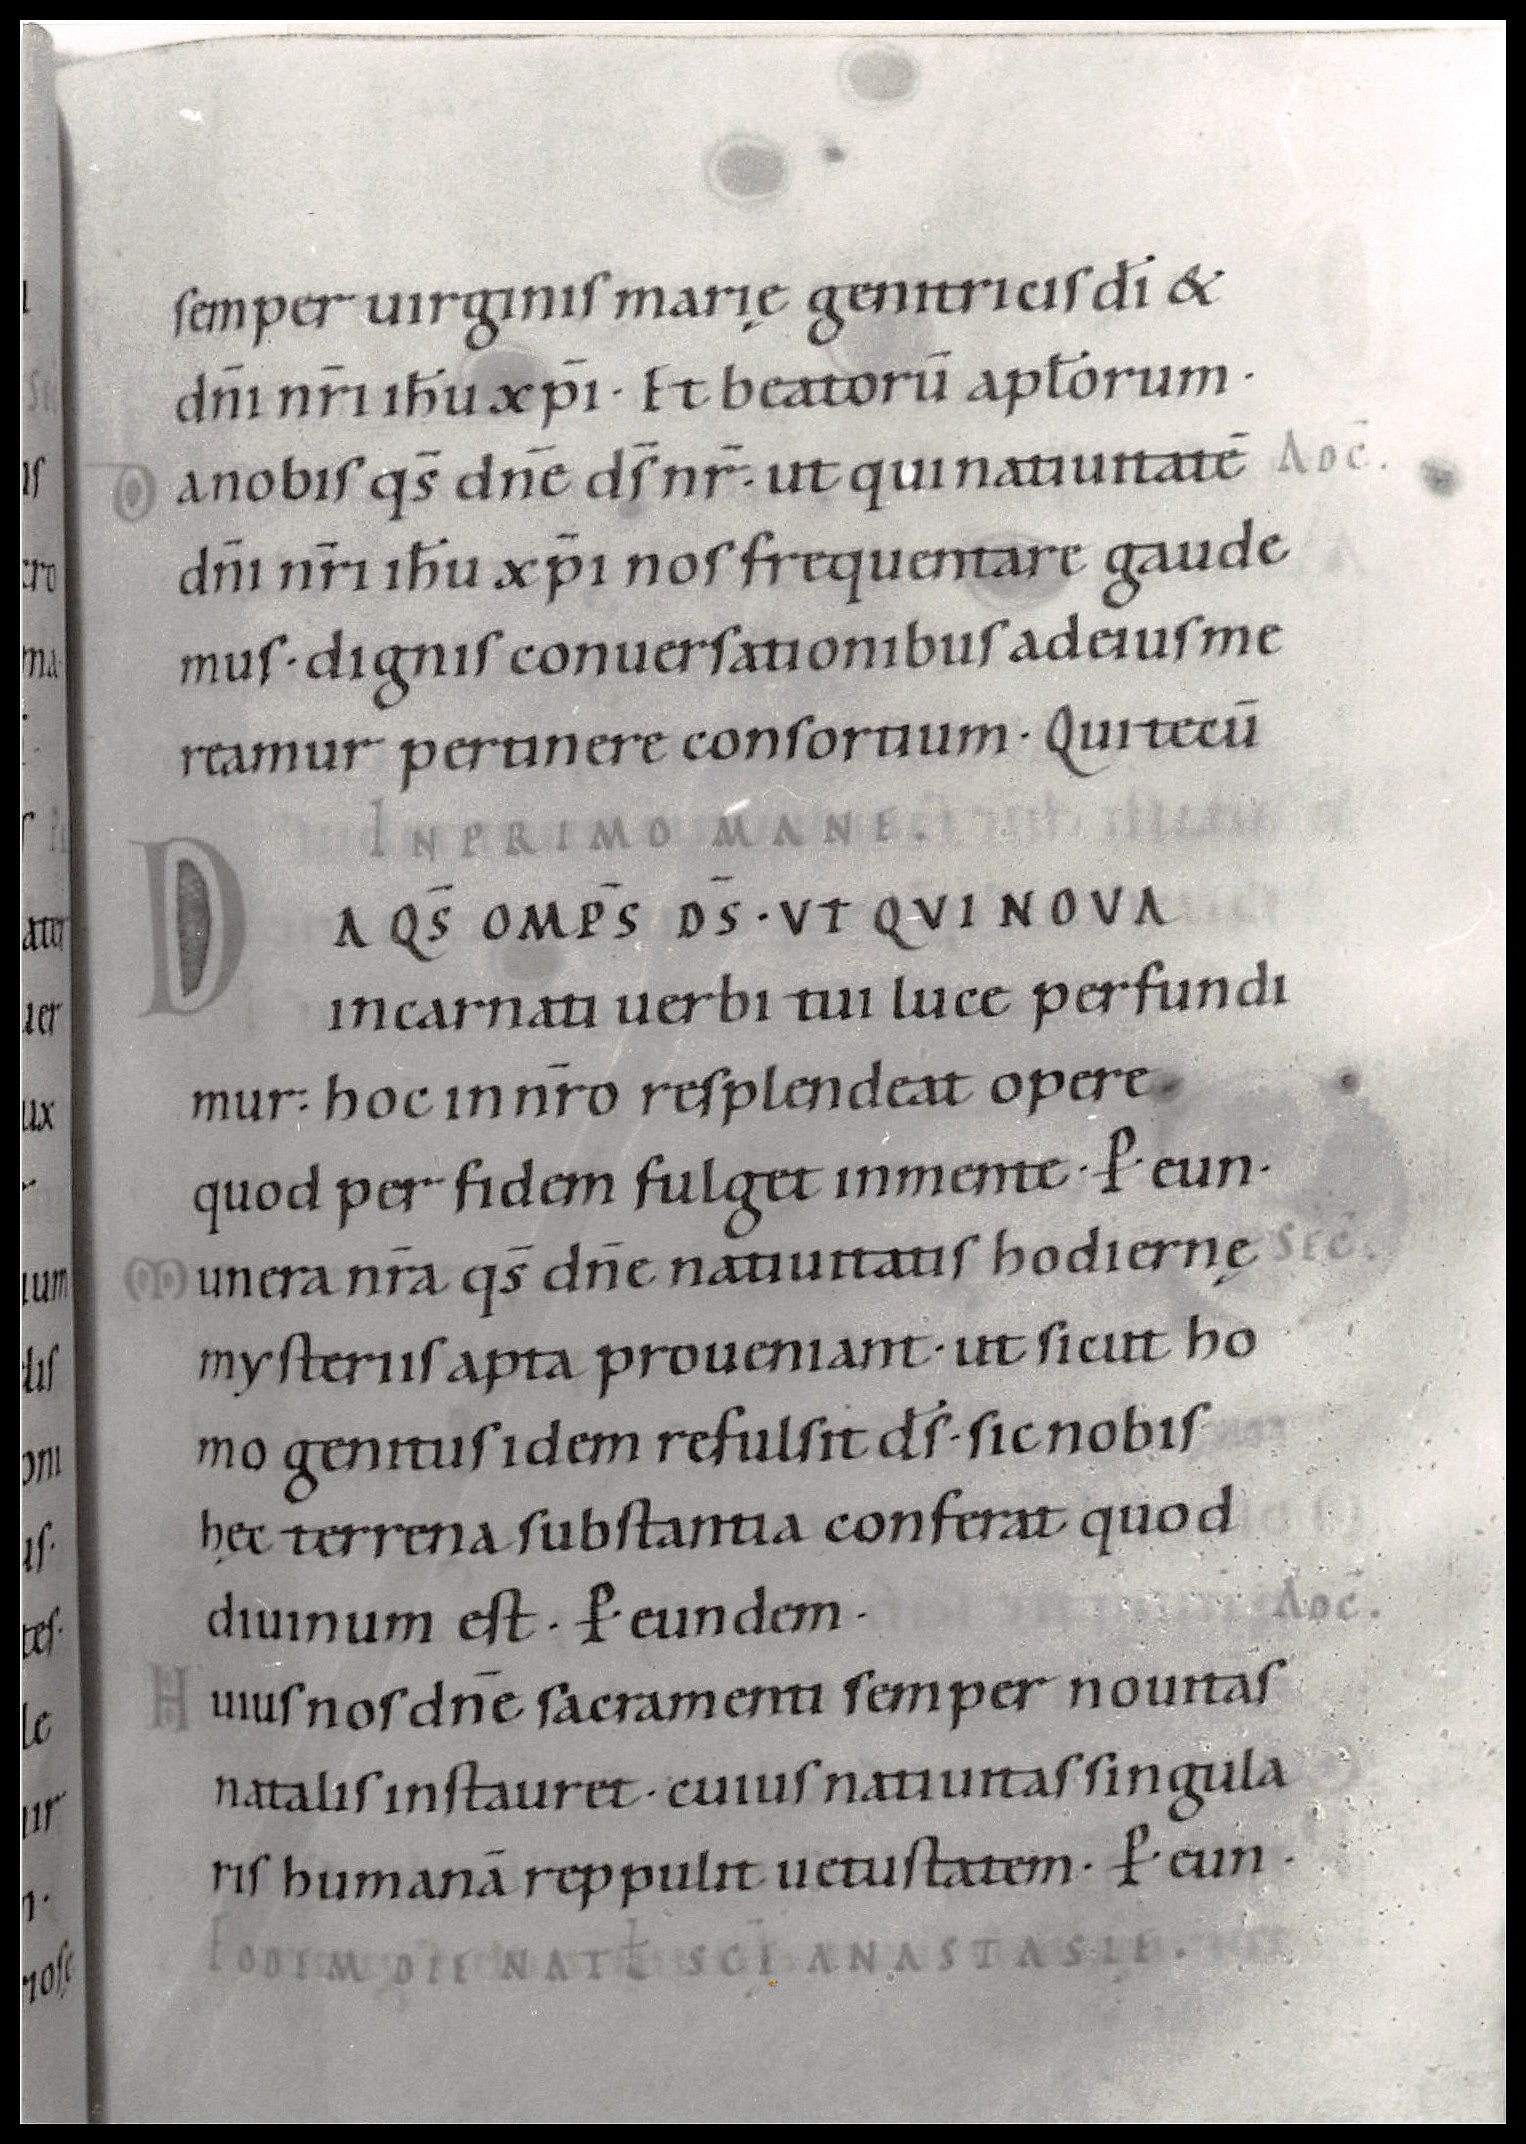 semper uirginis marię genitricis dı̄ &
dn̄i nr̄i ih̄u xp̄i · Et beatorū apl̄orum ·
Danobis qs̄ dn̄e ds̄ nr̄ · ut qui natiuitatē Adc̄.
dn̄i nr̄i ih̄u xp̄i nos frequentare gaude
mus · dignis conuersationibus ad eius me
reamur pertinere consortium · Qui tecū
IN PRIMO MANE.
DA QS̄ OMPS̄ DS̄ · VT QVI NOVA
incarnati uerbi tui luce perfundi
mur: hoc in nr̄o resplendeat opere
quod per fidem fulget in mente · P̲ eun ·
Munera nr̄a qs̄ dn̄e natiuitatis hodiernę Sec̄.
mysteriis apta proueniant · ut sicut ho
mo genitus idem refulsit ds̄ · sic nobis
hęc terrena substantia conferat quod
diuinum est · P̲ eundem ·
Adc̄.
Huius nos dn̄e sacramenti semper nouitas
natalis instauret · cuius natiuitas singula
ris humanā reppulit uetustatem · P̲ eun ·
EODEM DIE NATL̄ SCĪ ANASTASIE.